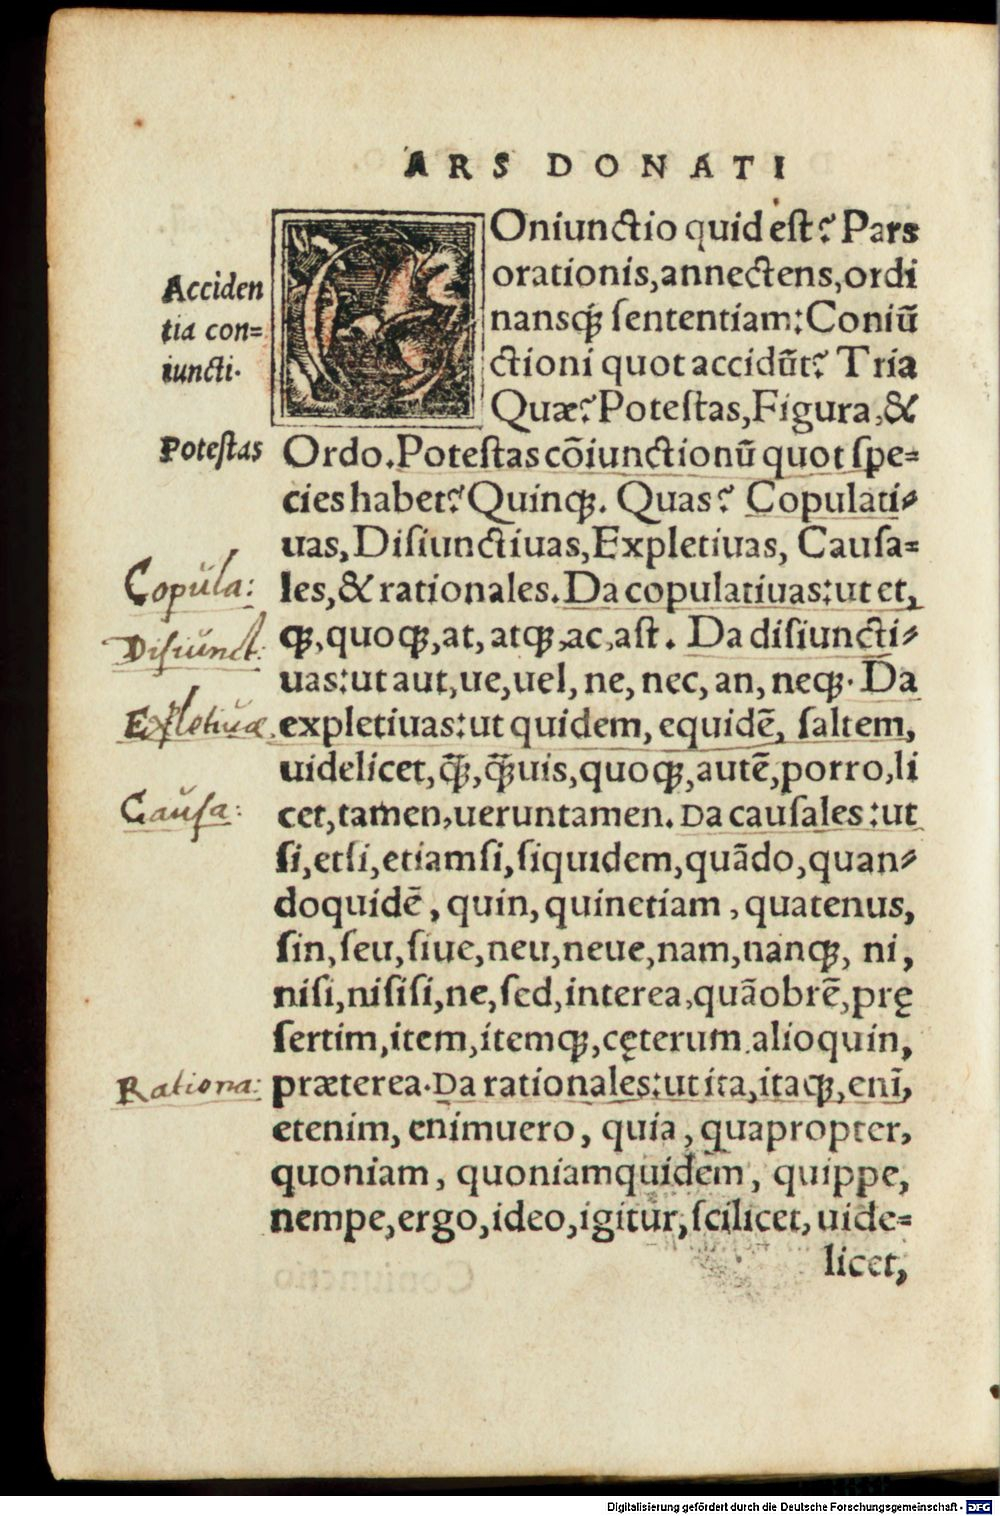 ARS DONATI
COniunctio quid est? Pars
orationis, annectens, ordi
nansq́ꝫ sententiam: Coniū
ctioni quot accidūt? Tria
Quæ? Potestas, Figura, &
Acciden
tia con=
iuncti.
Potestas
Ordo. Potestas cōiunctionū quot spe=
cies habet? Quinqꝫ. Quas? Copulati-
uas, Disiunctiuas, Expletiuas, Causa=
les, & rationales. Da copulatiuas: ut et,
Copula:
qꝫ, quoqꝫ, at, atqꝫ, ac, ast. Da disiuncti-
Disiunct:
uas: ut aut, ue, uel, ne, nec, an, neqꝫ. Da
expletiuas: ut quidem, equidē, saltem,
Expletiuæ.
uidelicet, q̄ꝫ, q̄ꝫuis, quoqꝫ, autē, porro, li
cet, tamen, ueruntamen. Da causales: ut
Causa:
si, etsi, etiamsi, siquidem, quādo, quan-
doquidē, quin, quinetiam, quatenus,
sin, seu, siue, neu, neue, nam, nanqꝫ, ni,
nisi, nisisi, ne, sed, interea, quāobrē, prę
sertim, item, itemqꝫ, cęterum. alioquin,
præterea. Da rationales: ut ita, itaqꝫ, enī,
Rationa:
etenim, enimuero, quia, quapropter,
quoniam, quoniamquidem, quippe,
nempe, ergo, ideo, igitur, scilicet, uide=
licet,
Digitalisierung gefördert durch die Deutsche Forschungsgemeinschaft - DFG